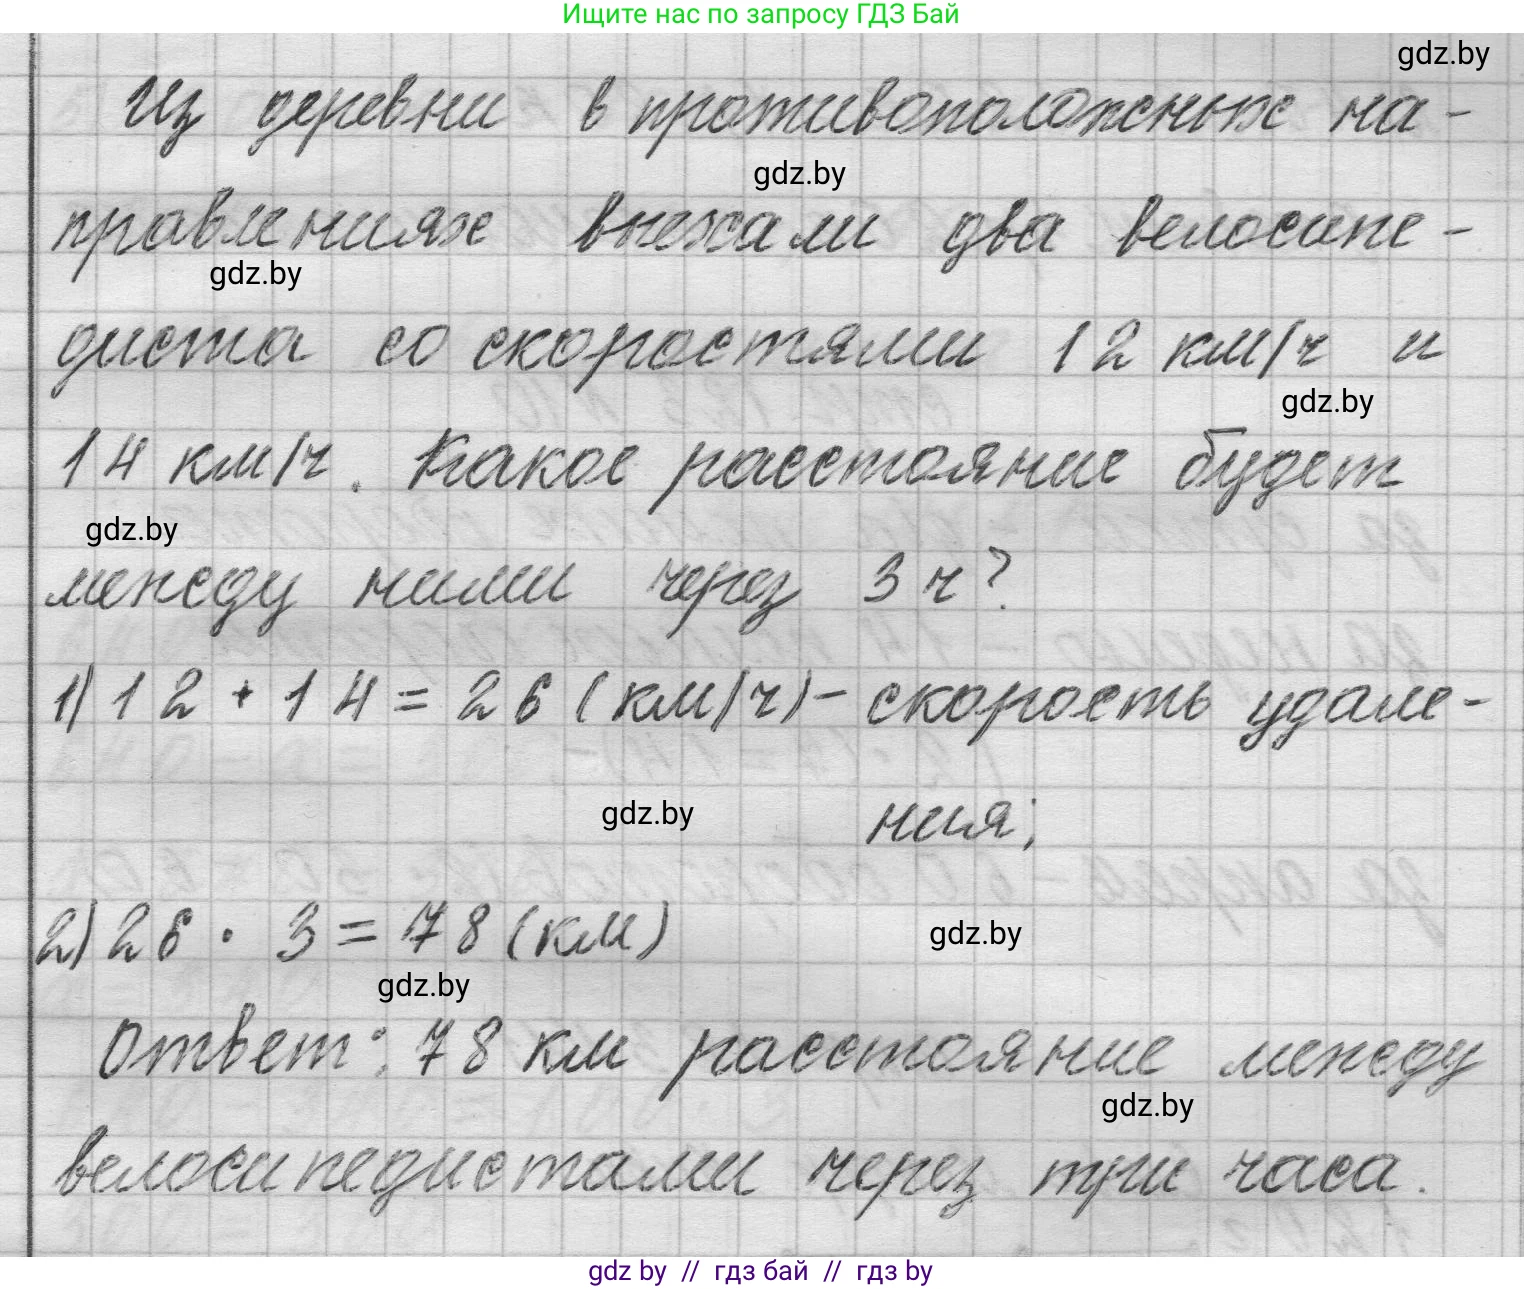 Ищите нас по запросу ГДЗ Бай
gdz.by
Из деревни в противоположных на-
gdz.by
правлениях выехали два велосипе-
gdz.by
диста со скоростями 12 км/ч и
gdz.by
14 км/ч. Какое расстояние будет
gdz.by
между ними через 3 ч?
1) 12 + 14 = 26 (км/ч) - скорость удале-
gdz.by
ния;
2) 26 · 3 = 78 (км)
gdz.by
gdz.by
Ответ: 78 км расстояние между
gdz.by
велосипедистами через три часа.
gdz by // гдз бай // гдз by